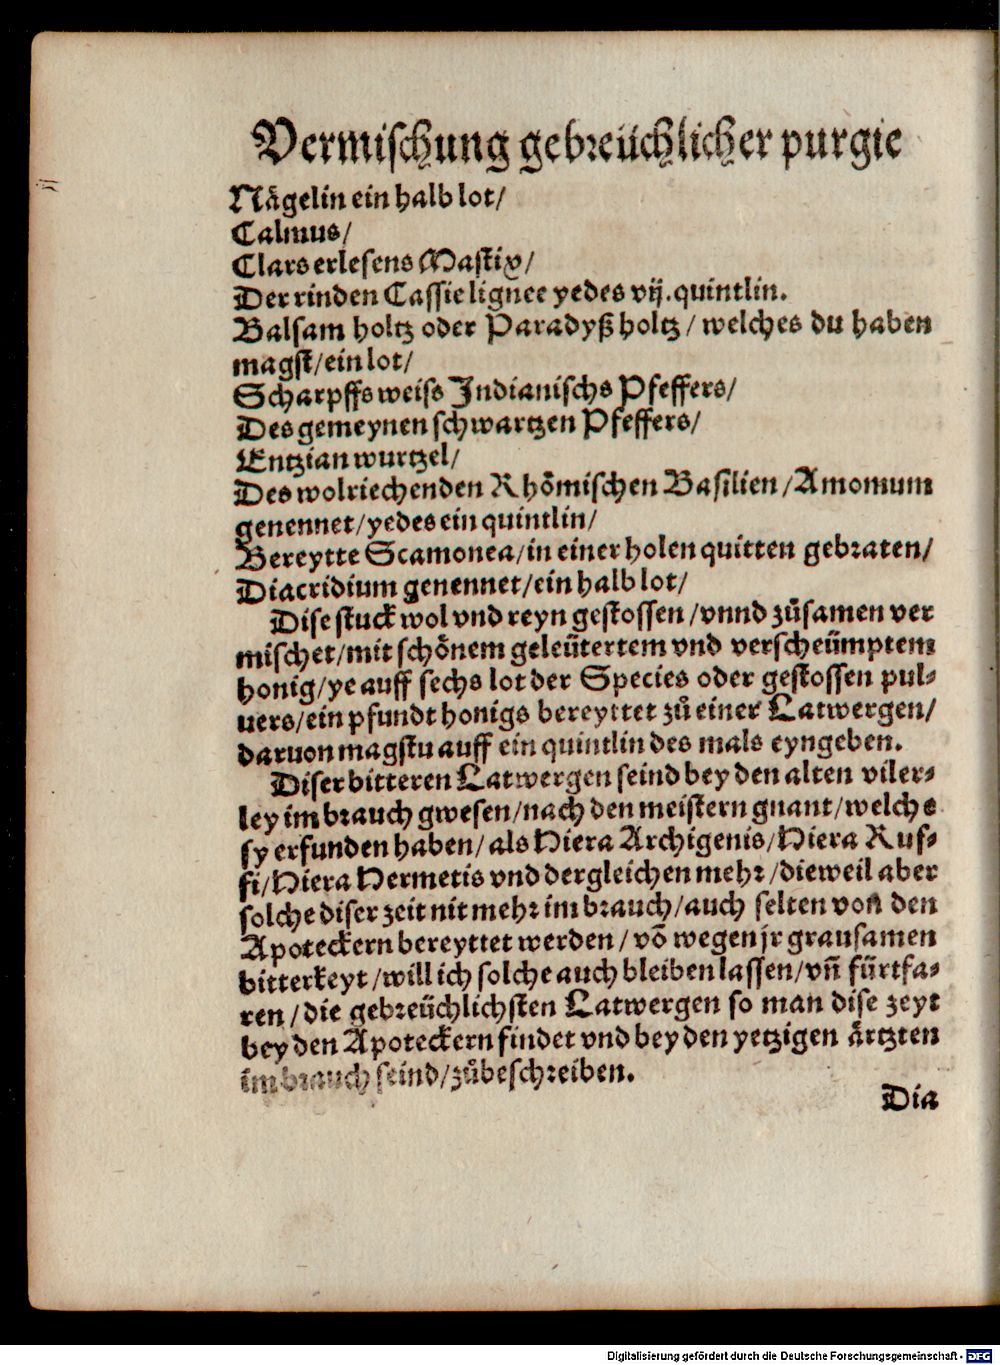 Vermischung gebreüchlicher purgie
Nägelin ein halb lot/
Calmus/
Clars erlesens Mastix/
Der rinden Cassie lignee yedes vij. quintlin.
Balsam holtz oder Paradyß holtz/ welches du haben
magst/ein lot/
Scharpffs weiss Indianischs Pfeffers/
Des gemeynen schwartzen Pfeffers/
Entzian wurtzel/
Des wolriechenden Rhömischen Basilien/Amomum
genennet/yedes ein quintlin/
Bereytte Scamonea/in einer holen quitten gebraten/
Diacridium genennet/ein halb lot/
Dise stuck wol vnd reyn gestossen/vnnd zůsamen ver
mischet/mit schönem geleütertem vnd verscheümptem
honig/ye auff sechs lot der Species oder gestossen pul-
uers/ein pfundt honigs bereyttet zů einer Latwergen/
daruon magstu auff ein quintlin des mals eyngeben.
Diser bitteren Latwergen seind bey den alten viler-
ley im brauch gwesen/nach den meistern gnant/welche
sy erfunden haben/als Hiera Archigenis/Hiera Ruf-
fi/Hiera Hermetis vnd dergleichen mehr/dieweil aber
solche diser zeit nit mehr im brauch/auch selten von den
Apoteckern bereyttet werden/võ wegen jr grausamen
bitterkeyt/will ich solche auch bleiben lassen/vñ fürtfa-
ren/die gebreüchlichsten Latwergen so man dise zeyt
bey den Apoteckern findet vnd bey den yetzigen ärtzten
im brauch seind/zůbeschreiben.
Dia
Digitalisierung gefördert durch die Deutsche Forschungsgemeinschaft - DFG